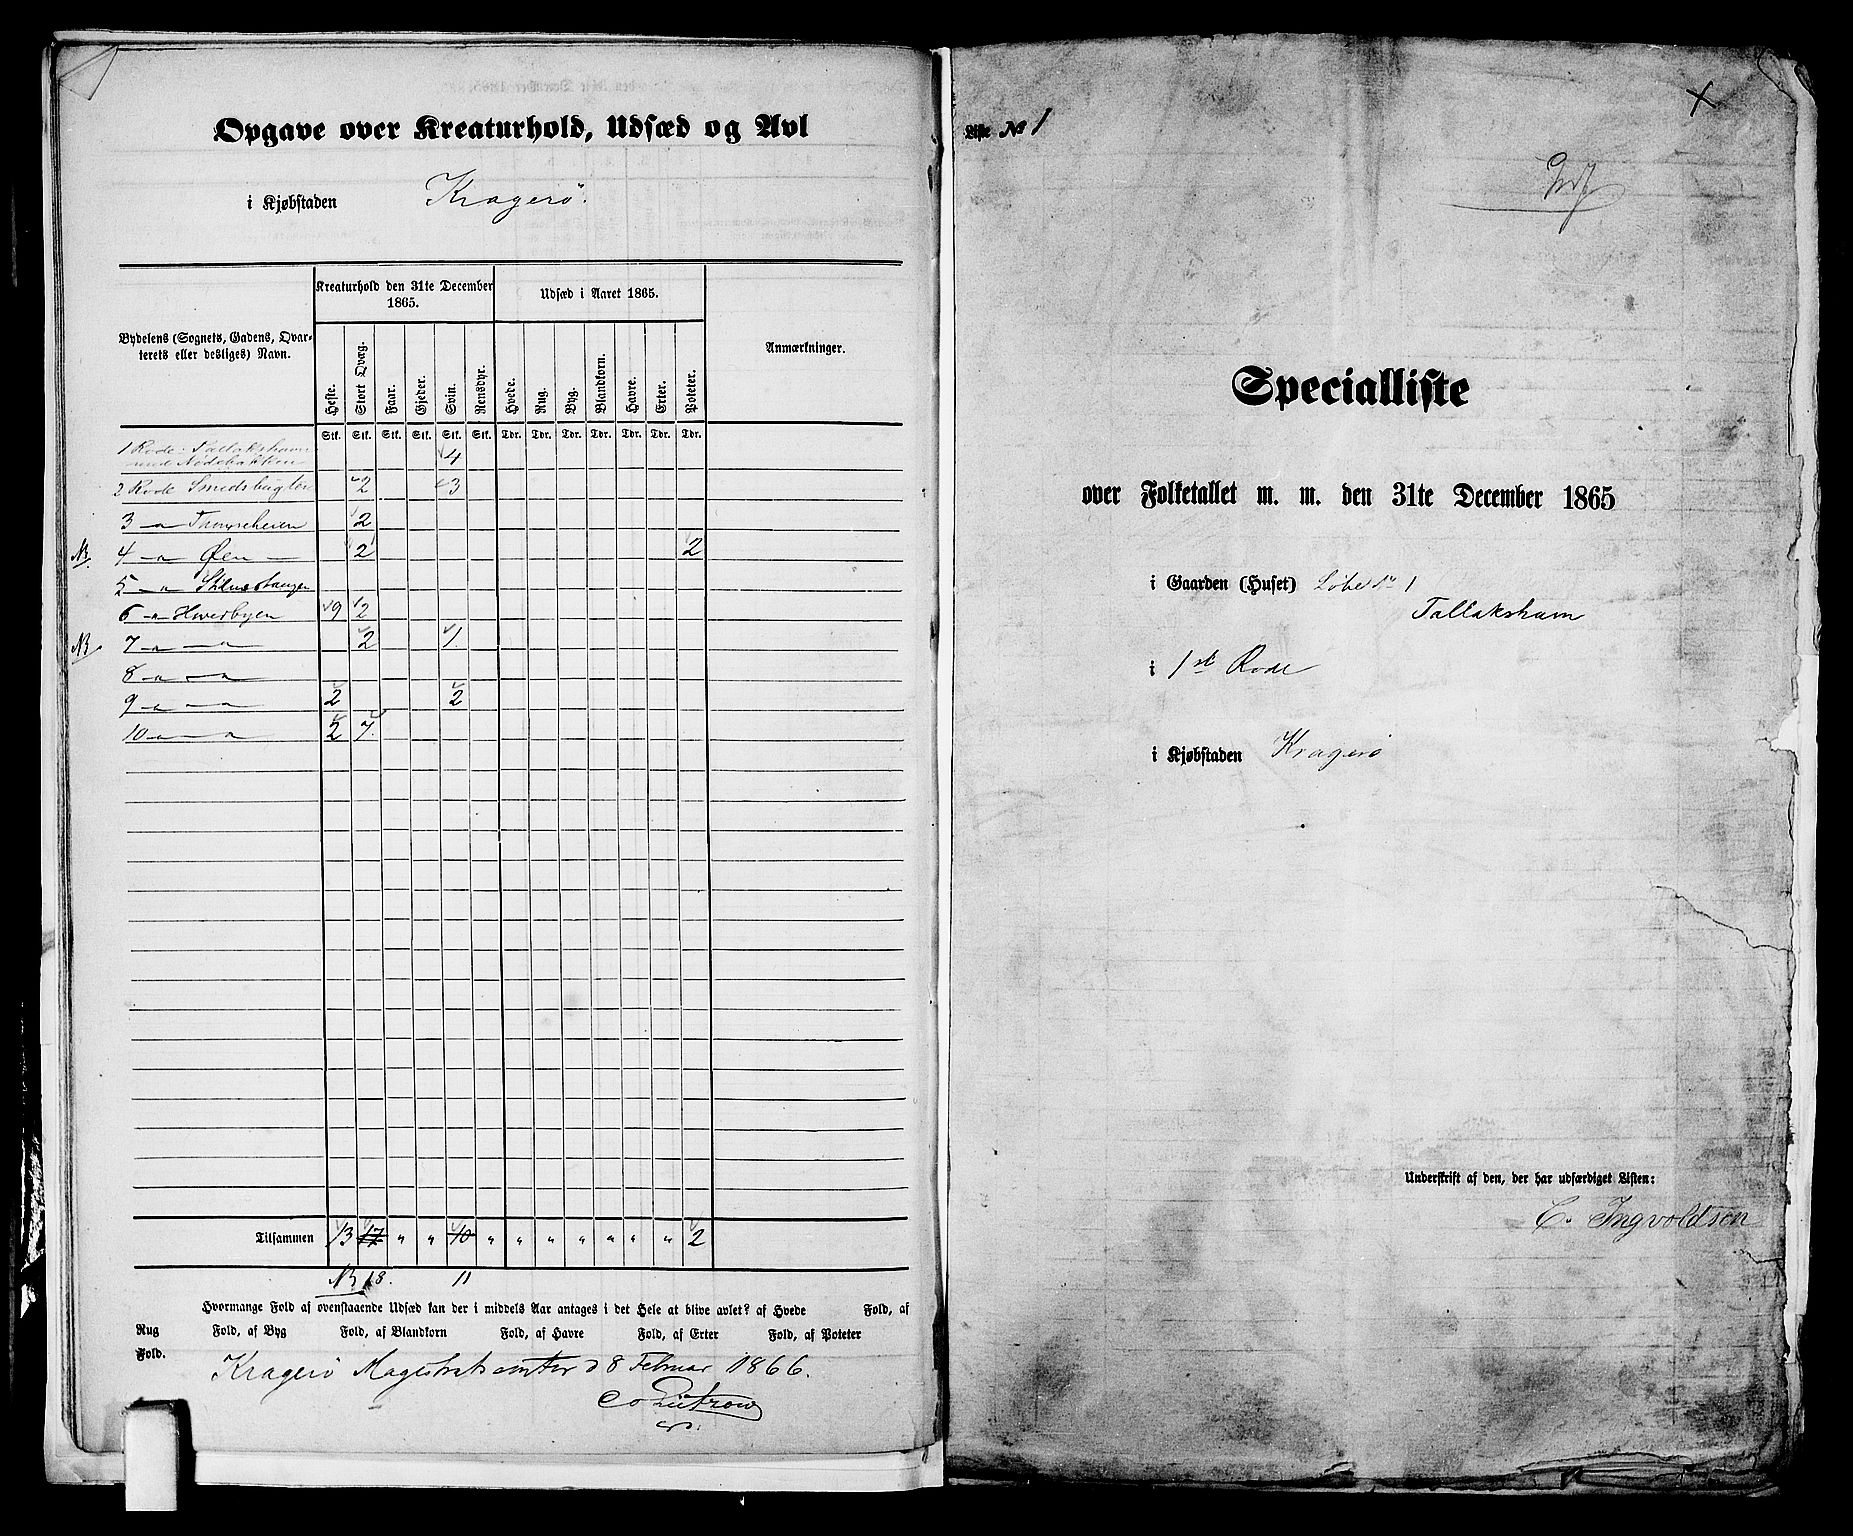 Opgave over Kreaturhold, Udsæd og Avl
i Kjøbstaden Kragerö.
Bydelens (Sognets, Gadens, Qvarterets eller desliges) Navn.
Kreaturhold den 31te December 1865.
Udsæd i Aaret 1865.
Anmærkninger.
Heste. Stort Qvæg. Faar. Gjeder. Svin. Rensdyr. Hvede. Rug. Byg. Blandkorn. Havre. Erter. Poteter.
Stk. Stk. Stk. Stk. Stk. Stk. Tdr. Tdr. Tdr. Tdr. Tdr. Tdr. Tdr.
1 Rode: Tallakshavn
med Nødebakken 4
2 Rode Smedsbugten 2 3
3 -"- 2
NB. 4 -"- Øen 2 2
5 -"-
6 -"- Hovedbyen 9 2
NB 7 -"- -"- 2 1.
8 -"- -"-
9 -"- -"- 2 2
10 -"- -"- 2 7.
Tilsammen 13 17 " " 10 " " " " " " " 2
NB 18. 11
Hvormange Fold af ovenstaaende Udsæd kan der i middels Aar antages i det Hele at blive avlet? af Hvede Fold, af
Rug Fold, af Byg Fold, af Blandkorn Fold, af Havre Fold, af Erter Fold, af Poteter
Fold.
Kragerö Magistrats d 8 Februar 1866.
Liste № 1
X
Specialliste
over Folketallet m. m. den 31te December 1865
i Gaarden (Huset) Løbe № 1
Tallakshavn
i 1ste Rode
i Kjøbstaden Kragerö
Underskrift af den, der har udfærdiget Listen:
C. Ingvoldsen